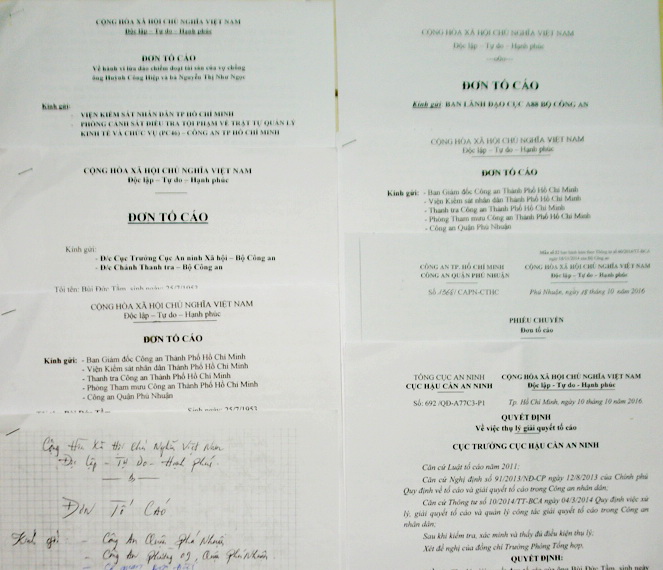 CỘNG HÒA XÃ HỘI CHỦ NGHĨA VIỆT NAM
Độc lập – Tự do – Hạnh phúc
ĐƠN TỐ CÁO
Về hành vi lừa đảo chiếm đoạt tài sản của vợ chồng
ông Huỳnh Công Hiệp và bà Nguyễn Thị Như Ngọc
Kính gửi:
- VIỆN KIỂM SÁT NHÂN DÂN TP HỒ CHÍ MINH
- PHÒNG CẢNH SÁT ĐIỀU TRA TỘI PHẠM VỀ TRẬT TỰ QUẢN LÝ
KINH TẾ VÀ CHỨC VỤ (PC46) – CÔNG AN TP HỒ CHÍ MINH
CỘNG HÒA XÃ HỘI CHỦ NGHĨA VIỆT NAM
Độc lập – Tự do – Hạnh phúc
ĐƠN TỐ CÁO
Kính gửi:
- Đ/c Cục Trưởng Cục An ninh Xã hội – Bộ Công an
- Đ/c Chánh Thanh tra – Bộ Công an
Tôi tên: Bùi Đức Tâm, sinh ngày 25/7/1953
CỘNG HÒA XÃ HỘI CHỦ NGHĨA VIỆT NAM
Độc lập – Tự do – Hạnh phúc
ĐƠN TỐ CÁO
Kính gửi: - Ban Giám đốc Công an Thành Phố Hồ Chí Minh
- Viện Kiểm sát nhân dân Thành Phố Hồ Chí Minh
- Thanh tra Công an Thành Phố Hồ Chí Minh
- Phòng Tham mưu Công an Thành Phố Hồ Chí Minh
- Công an Quận Phú Nhuận
Cộng Hòa Xã Hội Chủ Nghĩa Việt Nam
Độc lập - Tự do - Hạnh phúc
ĐƠN TỐ CÁO
Kính gửi: - Công An Quận Phú Nhuận
- Công An phường 09, Quận Phú Nhuận
CỘNG HÒA XÃ HỘI CHỦ NGHĨA VIỆT NAM
Độc lập – Tự do – Hạnh phúc
ĐƠN TỐ CÁO
Kính gửi: BAN LÃNH ĐẠO CỤC A88 BỘ CÔNG AN
CỘNG HÒA XÃ HỘI CHỦ NGHĨA VIỆT NAM
Độc lập – Tự do – Hạnh phúc
ĐƠN TỐ CÁO
Kính gửi: - Ban Giám đốc Công an Thành Phố Hồ Chí Minh
- Viện Kiểm sát nhân dân Thành Phố Hồ Chí Minh
- Thanh tra Công an Thành Phố Hồ Chí Minh
- Phòng Tham mưu Công an Thành Phố Hồ Chí Minh
- Công an Quận Phú Nhuận
CÔNG AN TP. HỒ CHÍ MINH
CÔNG AN QUẬN PHÚ NHUẬN
CỘNG HÒA XÃ HỘI CHỦ NGHĨA VIỆT NAM
Độc lập – Tự do – Hạnh phúc
/CAPN-CTHC
Phú Nhuận, ngày 18 tháng 10 năm 2016
PHIẾU CHUYỂN
Đơn tố cáo
TỔNG CỤC AN NINH
CỤC HẬU CẦN AN NINH
CỘNG HÒA XÃ HỘI CHỦ NGHĨA VIỆT NAM
Độc lập – Tự do – Hạnh phúc
Số: 692 /QĐ-A77C3-P1
Tp. Hồ Chí Minh, ngày 10 tháng 10 năm 2016
QUYẾT ĐỊNH
Về việc thụ lý giải quyết tố cáo
CỤC TRƯỞNG CỤC HẬU CẦN AN NINH
Căn cứ Luật tố cáo năm 2011;
Căn cứ Nghị định số 91/2013/NĐ-CP ngày 12/8/2013 của Chính phủ
Quy định về tố cáo và giải quyết tố cáo trong Công an nhân dân;
Căn cứ Thông tư số 10/2014/TT-BCA ngày 04/3/2014 Quy định việc xử
lý, giải quyết tố cáo và quản lý công tác giải quyết tố cáo trong Công an
nhân dân;
Sau khi kiểm tra, xác minh và thấy đủ điều kiện thụ lý;
Xét đề nghị của đồng chí Trưởng Phòng Tổng hợp,
QUYẾT ĐỊNH: